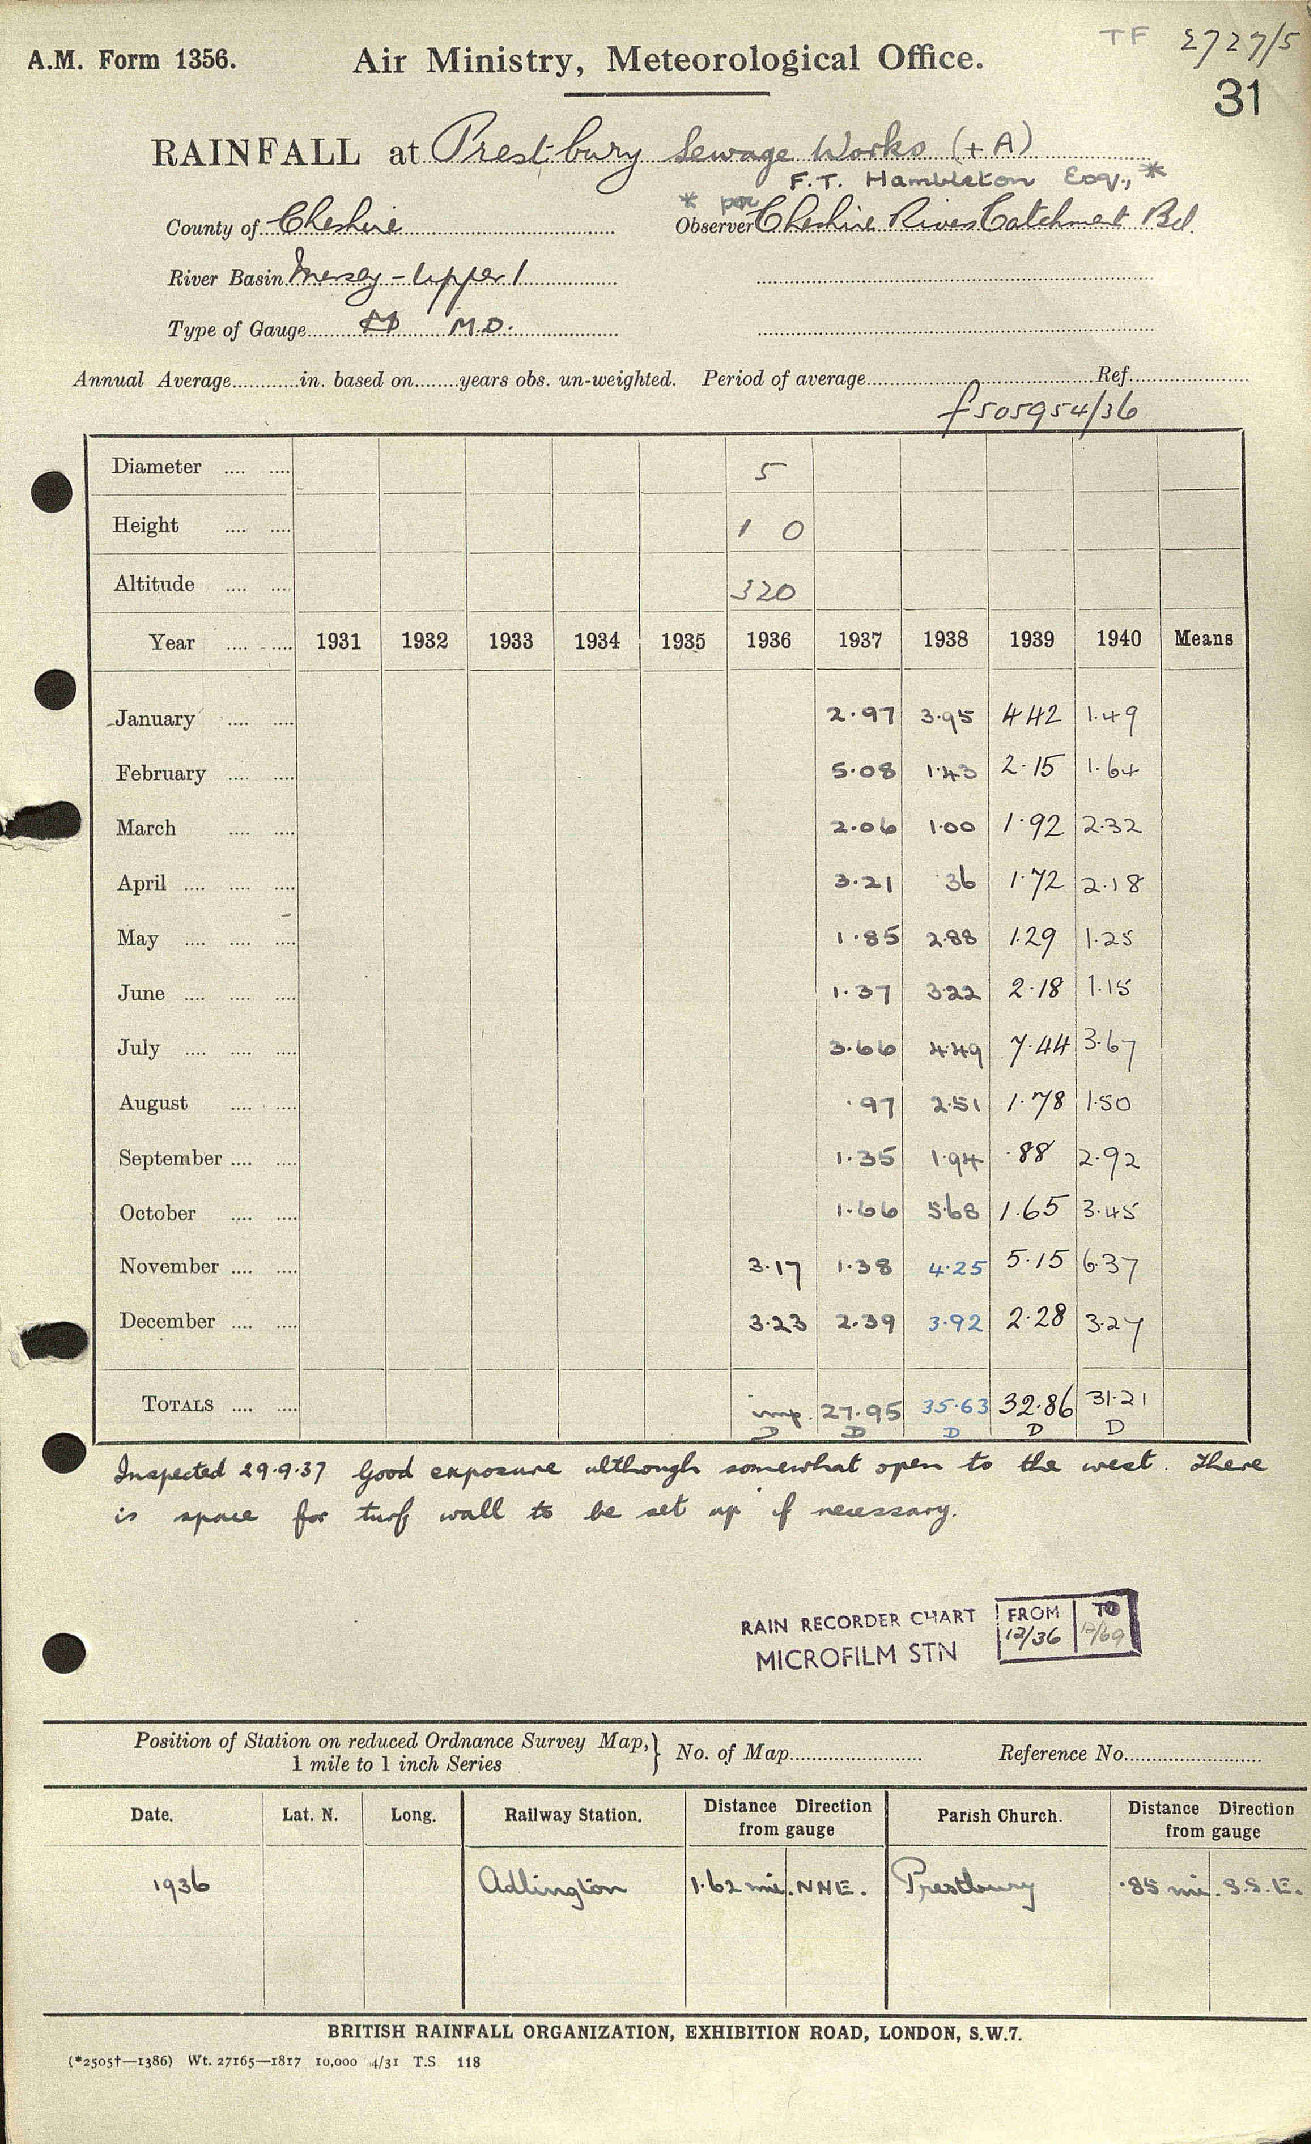 TF 2727/5
A.M. Form 1356. Air Ministry, Meteorological Office.
31
RAINFALL at Prestbury Sewage Works (+A)
F.T. Hambleton Esq., *
* per
County of Cheshire Observer Cheshire Rivers Catchment Bd.
River Basin Mersey - Upper 1
Type of Gauge M.O.
Annual Average in. based on years obs. un-weighted. Period of average Ref.
f505954/36
Diameter 5
Height 1 0
Altitude 320
Year 1931 1932 1933 1934 1935 1936 1937 1938 1939 1940 Means
January 2.97 3.95 4.42 1.49
February 5.08 1.43 2.15 1.64
March 2.06 1.00 1.92 2.32
April 3.21 36 1.72 2.18
May 1.85 2.88 1.29 1.25
June 1.37 3.22 2.18 1.15
July 3.66 4.49 7.44 3.67
August .97 2.51 1.78 1.50
September 1.35 1.94 .88 2.92
October 1.66 5.68 1.65 3.45
November 3.17 1.38 4.25 5.15 6.37
December 3.23 2.39 3.92 2.28 3.27
TOTALS imp. 27.95 35.63 32.86 31.21
D D D D D
Inspected 29.9.37 Good exposure although somewhat open to the west. There
is space for turf wall to be set up if necessary.
RAIN RECORDER CHART FROM TO
MICROFILM STN 12/36 12/69
Position of Station on reduced Ordnance Survey Map, } No. of Map Reference No.
1 mile to 1 inch Series
Date. Lat. N. Long. Railway Station. Distance Direction from gauge Parish Church. Distance Direction from gauge
1936 Adlington 1.62 mi. NNE. Prestbury .85 mi. S.S.E.
BRITISH RAINFALL ORGANIZATION, EXHIBITION ROAD, LONDON, S.W.7.
(*2505†—1386) Wt. 27165—1817 10,000 4/31 T.S 118